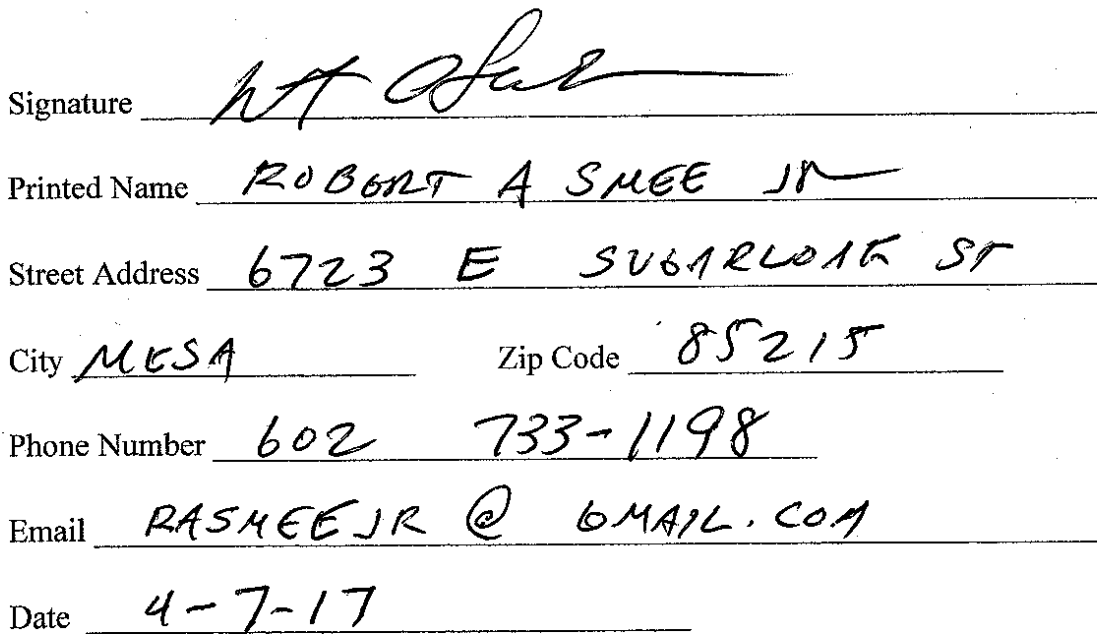 Signature
Printed Name ROBERT A SMEE JR
Street Address 6723 E SUGARLOAF ST
City MESA Zip Code 85215
Phone Number 602 733-1198
Email RASMEEJR @ GMAIL.COM
Date 4-7-17